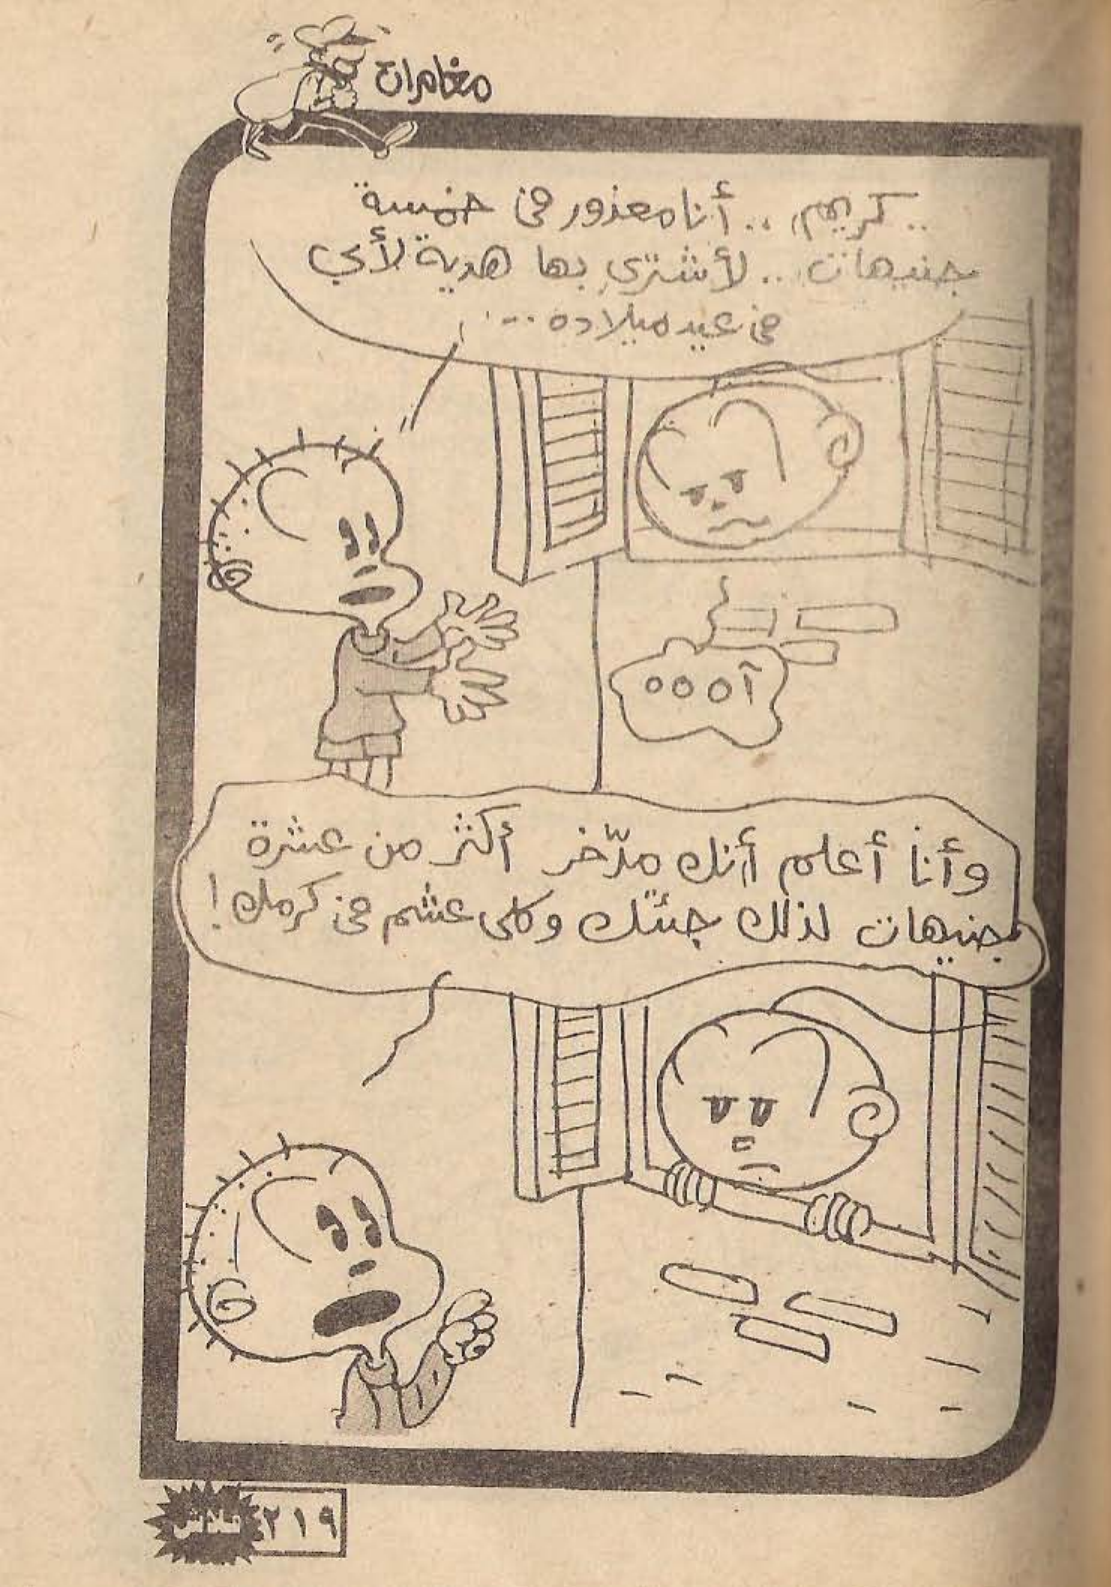 مغامرات
.. كريم .. أنا معذور فى خمسة
جنيهات... لأشترى بها هدية لأبى
فى عيد ميلاده ...
آ ه ه ه
وأنا أعلم أنك مدّخر أكثر من عشرة
جنيهات لذلك جئتك وكلى عشم فى كرمك !
فلاش
٢١٩